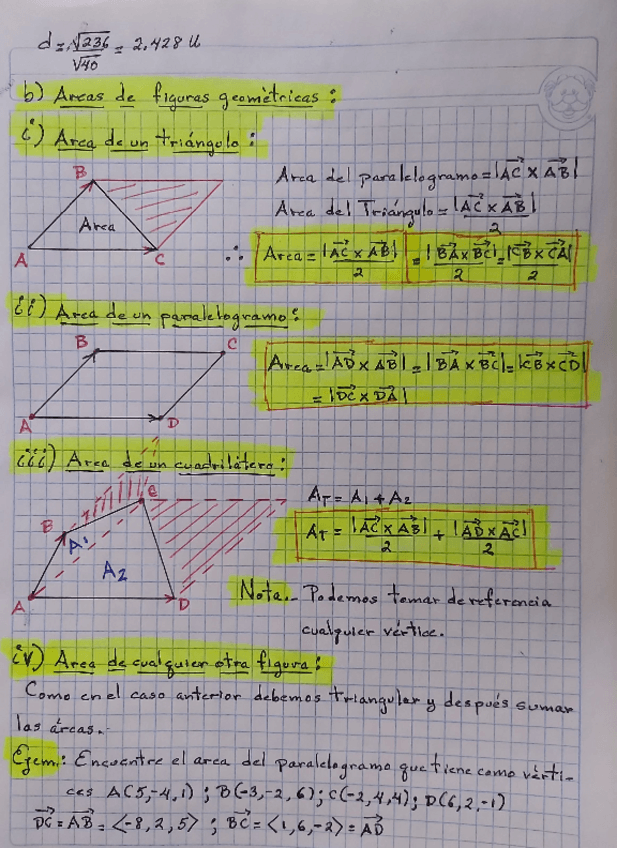 d = √236 / √40 = 2,428 u
b) Areas de figuras geométricas:
i) Area de un triángulo:
B
Area
A
C
Area del paralelogramo = |AC⃗ × AB⃗|
Area del Triángulo = |AC⃗ × AB⃗| / 2
∴ Area = |AC⃗ × AB⃗| / 2 = |BA⃗ × BC⃗| / 2 = |CB⃗ × CA⃗| / 2
ii) Area de un paralelogramo:
B
C
A
D
Area = |AD⃗ × AB⃗| = |BA⃗ × BC⃗| = |CB⃗ × CD⃗|
= |DC⃗ × DA⃗|
iii) Area de un cuadrilátero:
C
B
A1
A2
A
D
AT = A1 + A2
AT = |AC⃗ × AB⃗| / 2 + |AD⃗ × AC⃗| / 2
Nota.- Podemos tomar de referencia
cualquier vértice.
iv) Area de cualquier otra figura:
Como en el caso anterior debemos triangular y después sumar
las áreas.-
Ejem: Encuentre el area del paralelogramo que tiene como vérti-
ces A(5,-4,1) ; B(-3,-2,6) ; C(-2,4,4) ; D(6,2,-1)
DC⃗ = AB⃗ = <-8,2,5> ; BC⃗ = <1,6,-2> = AD⃗